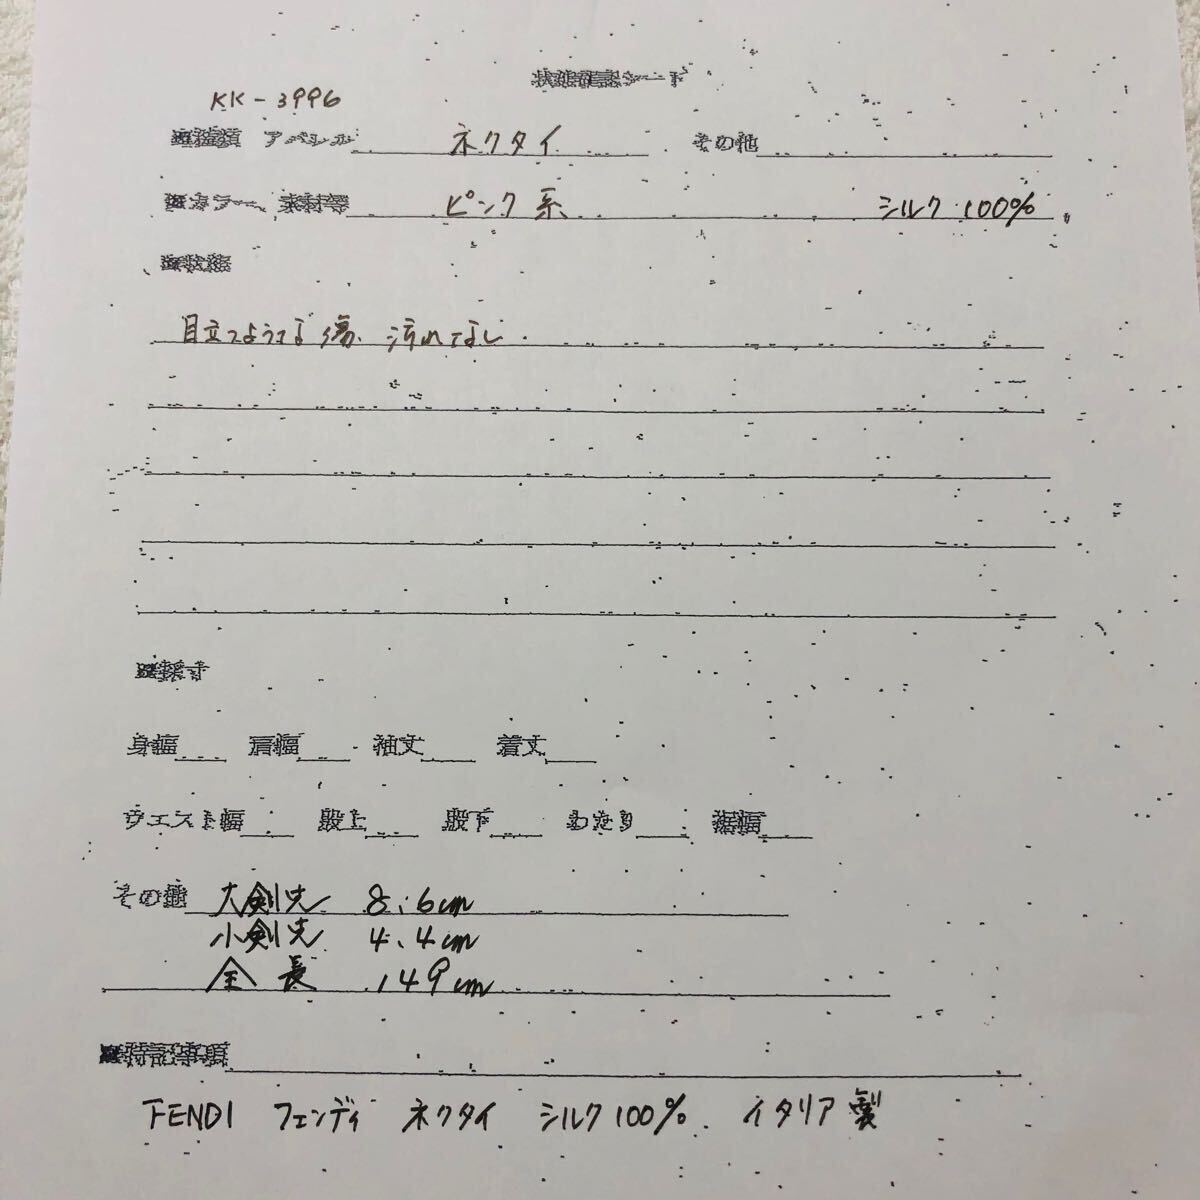 状態確認シート
KK-3996
■種類 アパレル ネクタイ その他
■カラー、素材等 ピンク系 シルク100%
■状態
目立つような傷、汚れなし.
■採寸
身幅 肩幅 袖丈 着丈
ウエスト幅 股上 股下 わたり 裾幅
その他 大剣先 8.6cm
小剣先 4.4cm
全長 149cm
■特記事項
FENDI フェンディ ネクタイ シルク100%. イタリア製